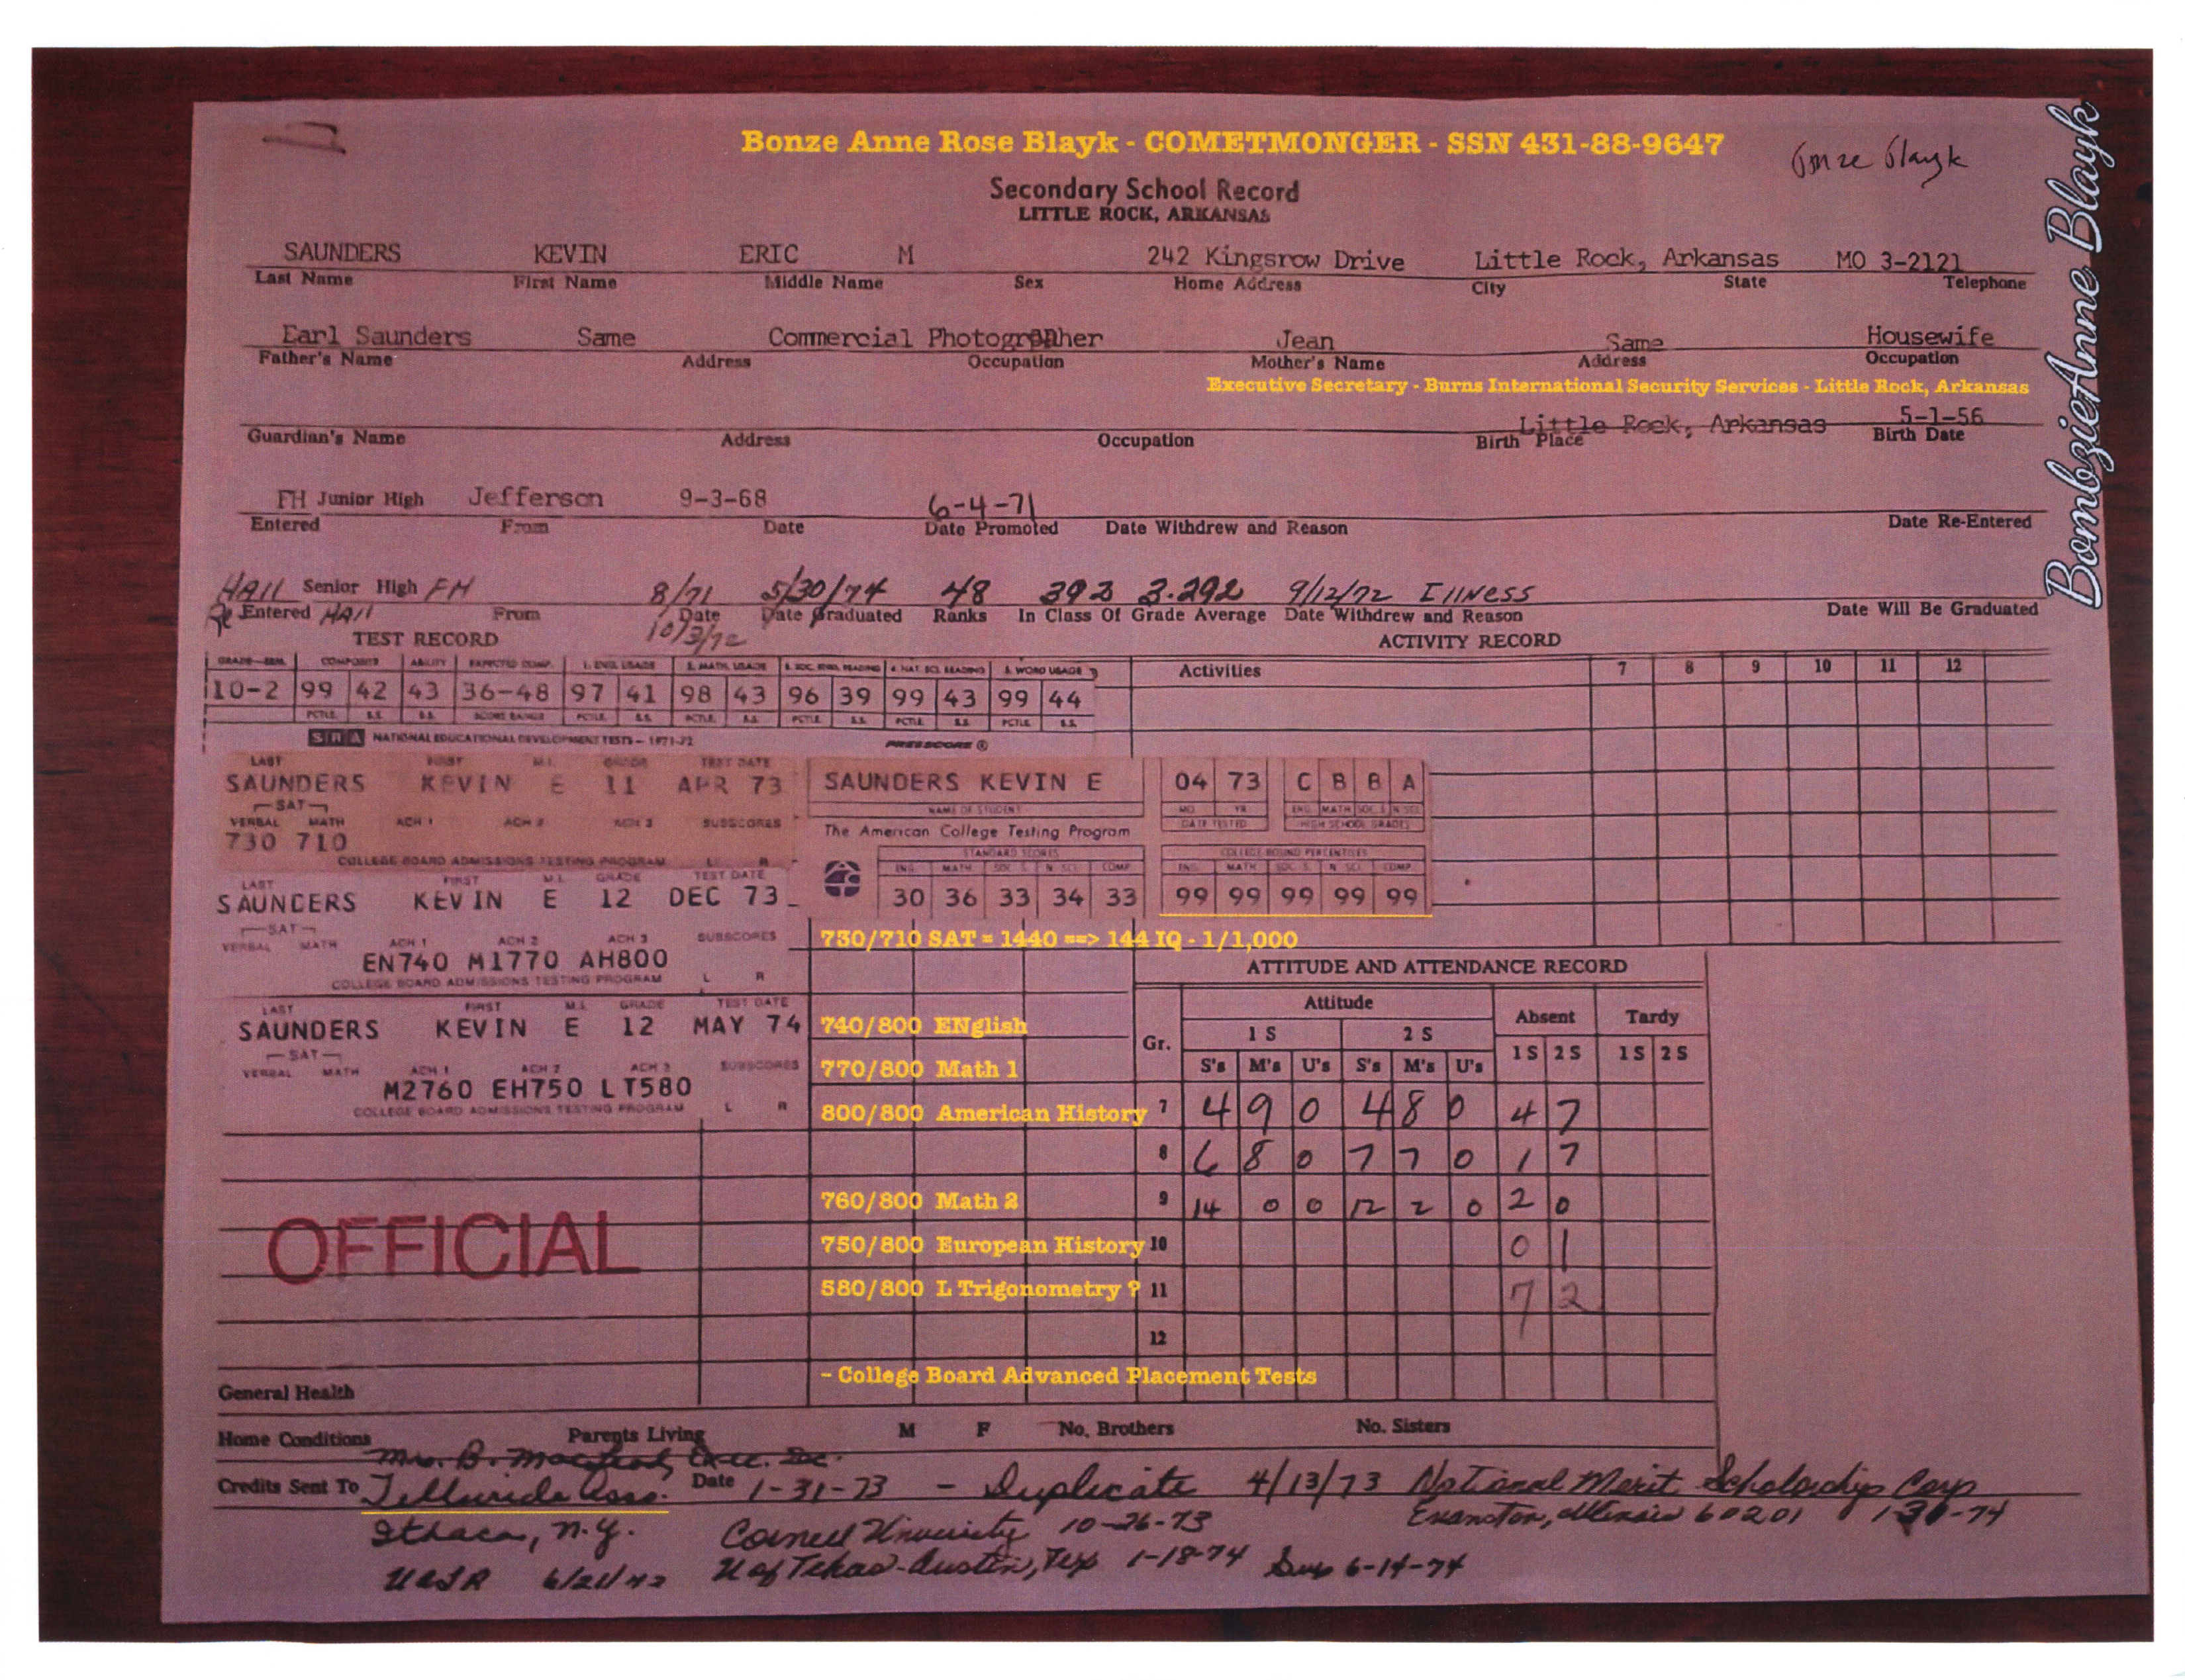 Bonze Anne Rose Blayk - COMETMONGER - SSN 431-88-9647
Bonze Blayk
BombzieAnne Blayk
Secondary School Record
LITTLE ROCK, ARKANSAS
SAUNDERS KEVIN ERIC M 242 Kingsrow Drive Little Rock, Arkansas MO 3-2121
Last Name First Name Middle Name Sex Home Address City State Telephone
Earl Saunders Same Commercial Photographer Jean Same Housewife
Father's Name Address Occupation Mother's Name Address Occupation
Executive Secretary - Burns International Security Services - Little Rock, Arkansas
Little Rock, Arkansas 5-1-56
Guardian's Name Address Occupation Birth Place Birth Date
FH Junior High Jefferson 9-3-68 6-4-71
Entered From Date Date Promoted Date Withdrew and Reason Date Re-Entered
HAll Senior High FH 8/71 5/30/74 48 392 3.292 9/12/72 Illness
Re Entered HAll From Date Date Graduated Ranks In Class Of Grade Average Date Withdrew and Reason Date Will Be Graduated
10/3/72
TEST RECORD ACTIVITY RECORD
GRADE-SEM. COMPOSITE ABILITY EXPECTED COMP. 1. ENG. USAGE 2. MATH. USAGE 3. SOC. STUD. READING 4. NAT. SCI. READING 5. WORD USAGE Activities 7 8 9 10 11 12
10-2 99 42 43 36-48 97 41 98 43 96 39 99 43 99 44
PCTLE S.S. S.S. SCORE RANGE PCTLE S.S. PCTLE S.S. PCTLE S.S. PCTLE S.S. PCTLE S.S.
SRA NATIONAL EDUCATIONAL DEVELOPMENT TESTS - 1971-72 PRESSCORE ®
LAST FIRST M.I. GRADE TEST DATE
SAUNDERS KEVIN E 11 APR 73
SAT
VERBAL MATH ACH 1 ACH 2 ACH 3 SUBSCORES
730 710
COLLEGE BOARD ADMISSIONS TESTING PROGRAM L R
SAUNDERS KEVIN E 04 73 C B B A
NAME OF STUDENT MO. YR. ENG. MATH SOC. S. N. SCI.
The American College Testing Program DATE TESTED HIGH SCHOOL GRADES
STANDARD SCORES COLLEGE BOUND PERCENTILES
ENG. MATH SOC. S. N. SCI. COMP. ENG. MATH SOC. S. N. SCI. COMP.
30 36 33 34 33 99 99 99 99 99
LAST FIRST M.I. GRADE TEST DATE
SAUNDERS KEVIN E 12 DEC 73
SAT
VERBAL MATH ACH 1 ACH 2 ACH 3 SUBSCORES
EN740 M1770 AH800
COLLEGE BOARD ADMISSIONS TESTING PROGRAM L R
730/710 SAT = 1440 ==> 144 IQ - 1/1,000
LAST FIRST M.I. GRADE TEST DATE
SAUNDERS KEVIN E 12 MAY 74
SAT
VERBAL MATH ACH 1 ACH 2 ACH 3 SUBSCORES
M2760 EH750 LT580
COLLEGE BOARD ADMISSIONS TESTING PROGRAM L R
740/800 ENglish
770/800 Math 1
800/800 American History
760/800 Math 2
750/800 European History
580/800 L Trigonometry ?
- College Board Advanced Placement Tests
OFFICIAL
ATTITUDE AND ATTENDANCE RECORD
Attitude Absent Tardy
Gr. 1 S 2 S 1S 2S 1S 2S
S's M's U's S's M's U's
7 4 9 0 4 8 0 4 7
8 6 8 0 7 7 0 1 7
9 14 0 0 12 2 0 2 0
10 0 1
11 7 2
12
General Health
Home Conditions Parents Living M F No. Brothers No. Sisters
Mrs. B. Exec. Sec.
Credits Sent To Telluride Asso. Date 1-31-73 - Duplicate 4/13/73 National Merit Scholarship Corp
Ithaca, N.Y. Cornell University 10-26-73 Evanston, Illinois 60201 1-30-74
UALR U of Texas-Austin, Tex 1-18-74 Sup 6-14-74